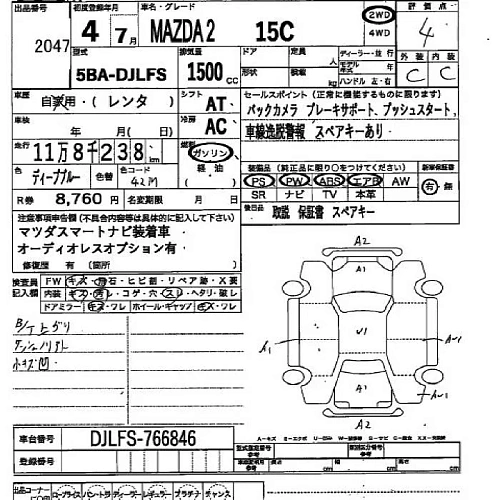 出品番号 2047
初度登録年月 4年 7月
車名・グレード MAZDA2 15C
2WD 4WD
評価点 4
型式 5BA-DJLFS
排気量 1500cc
ドア 形状
定員 人 積載
ディーラー・並行
モデル年式 年
ハンドル 左・右
外装 C 内装 C
車歴 自家用・(レンタ)
シフト AT
車検 年 月( 日)
冷房 AC
走行 11万8千238km
燃料 ガソリン 軽油
色 ディープブルー 色替 色コード 42M
R券 8,760円 名変期限 月 日
セールスポイント(正常に機能するものに限ります)
バックカメラ ブレーキサポート、プッシュスタート、
車線逸脱警報 スペアキーあり
装備品(純正品に限り○をつけてください) 新車保証書
PS PW ABS エアB AW 有・無
SR ナビ TV 本革
後日品 取説 保証書 スペアキー
注意事項申告欄(不具合内容等は具体的に記入して下さい)
マツダスマートナビ装着車
オーディオレスオプション有
修復歴 有(箇所 )
検査員記入欄
FW キズ・飛石・ヒビ割・リペア跡・X要
内装 キズ・汚れ・コゲ・穴・スレ・ヘタリ・破レ
ドアミラー キズ・ワレ ホイール・キャップ キズ・ワレ
小キズ凹
A2
A1
U1
A1
A1
A2
車台番号 DJLFS-766846
登録番号
型式指定番号 参考
類別区分番号 参考
長さ cm 幅 cm 高さ cm
出品コーナー